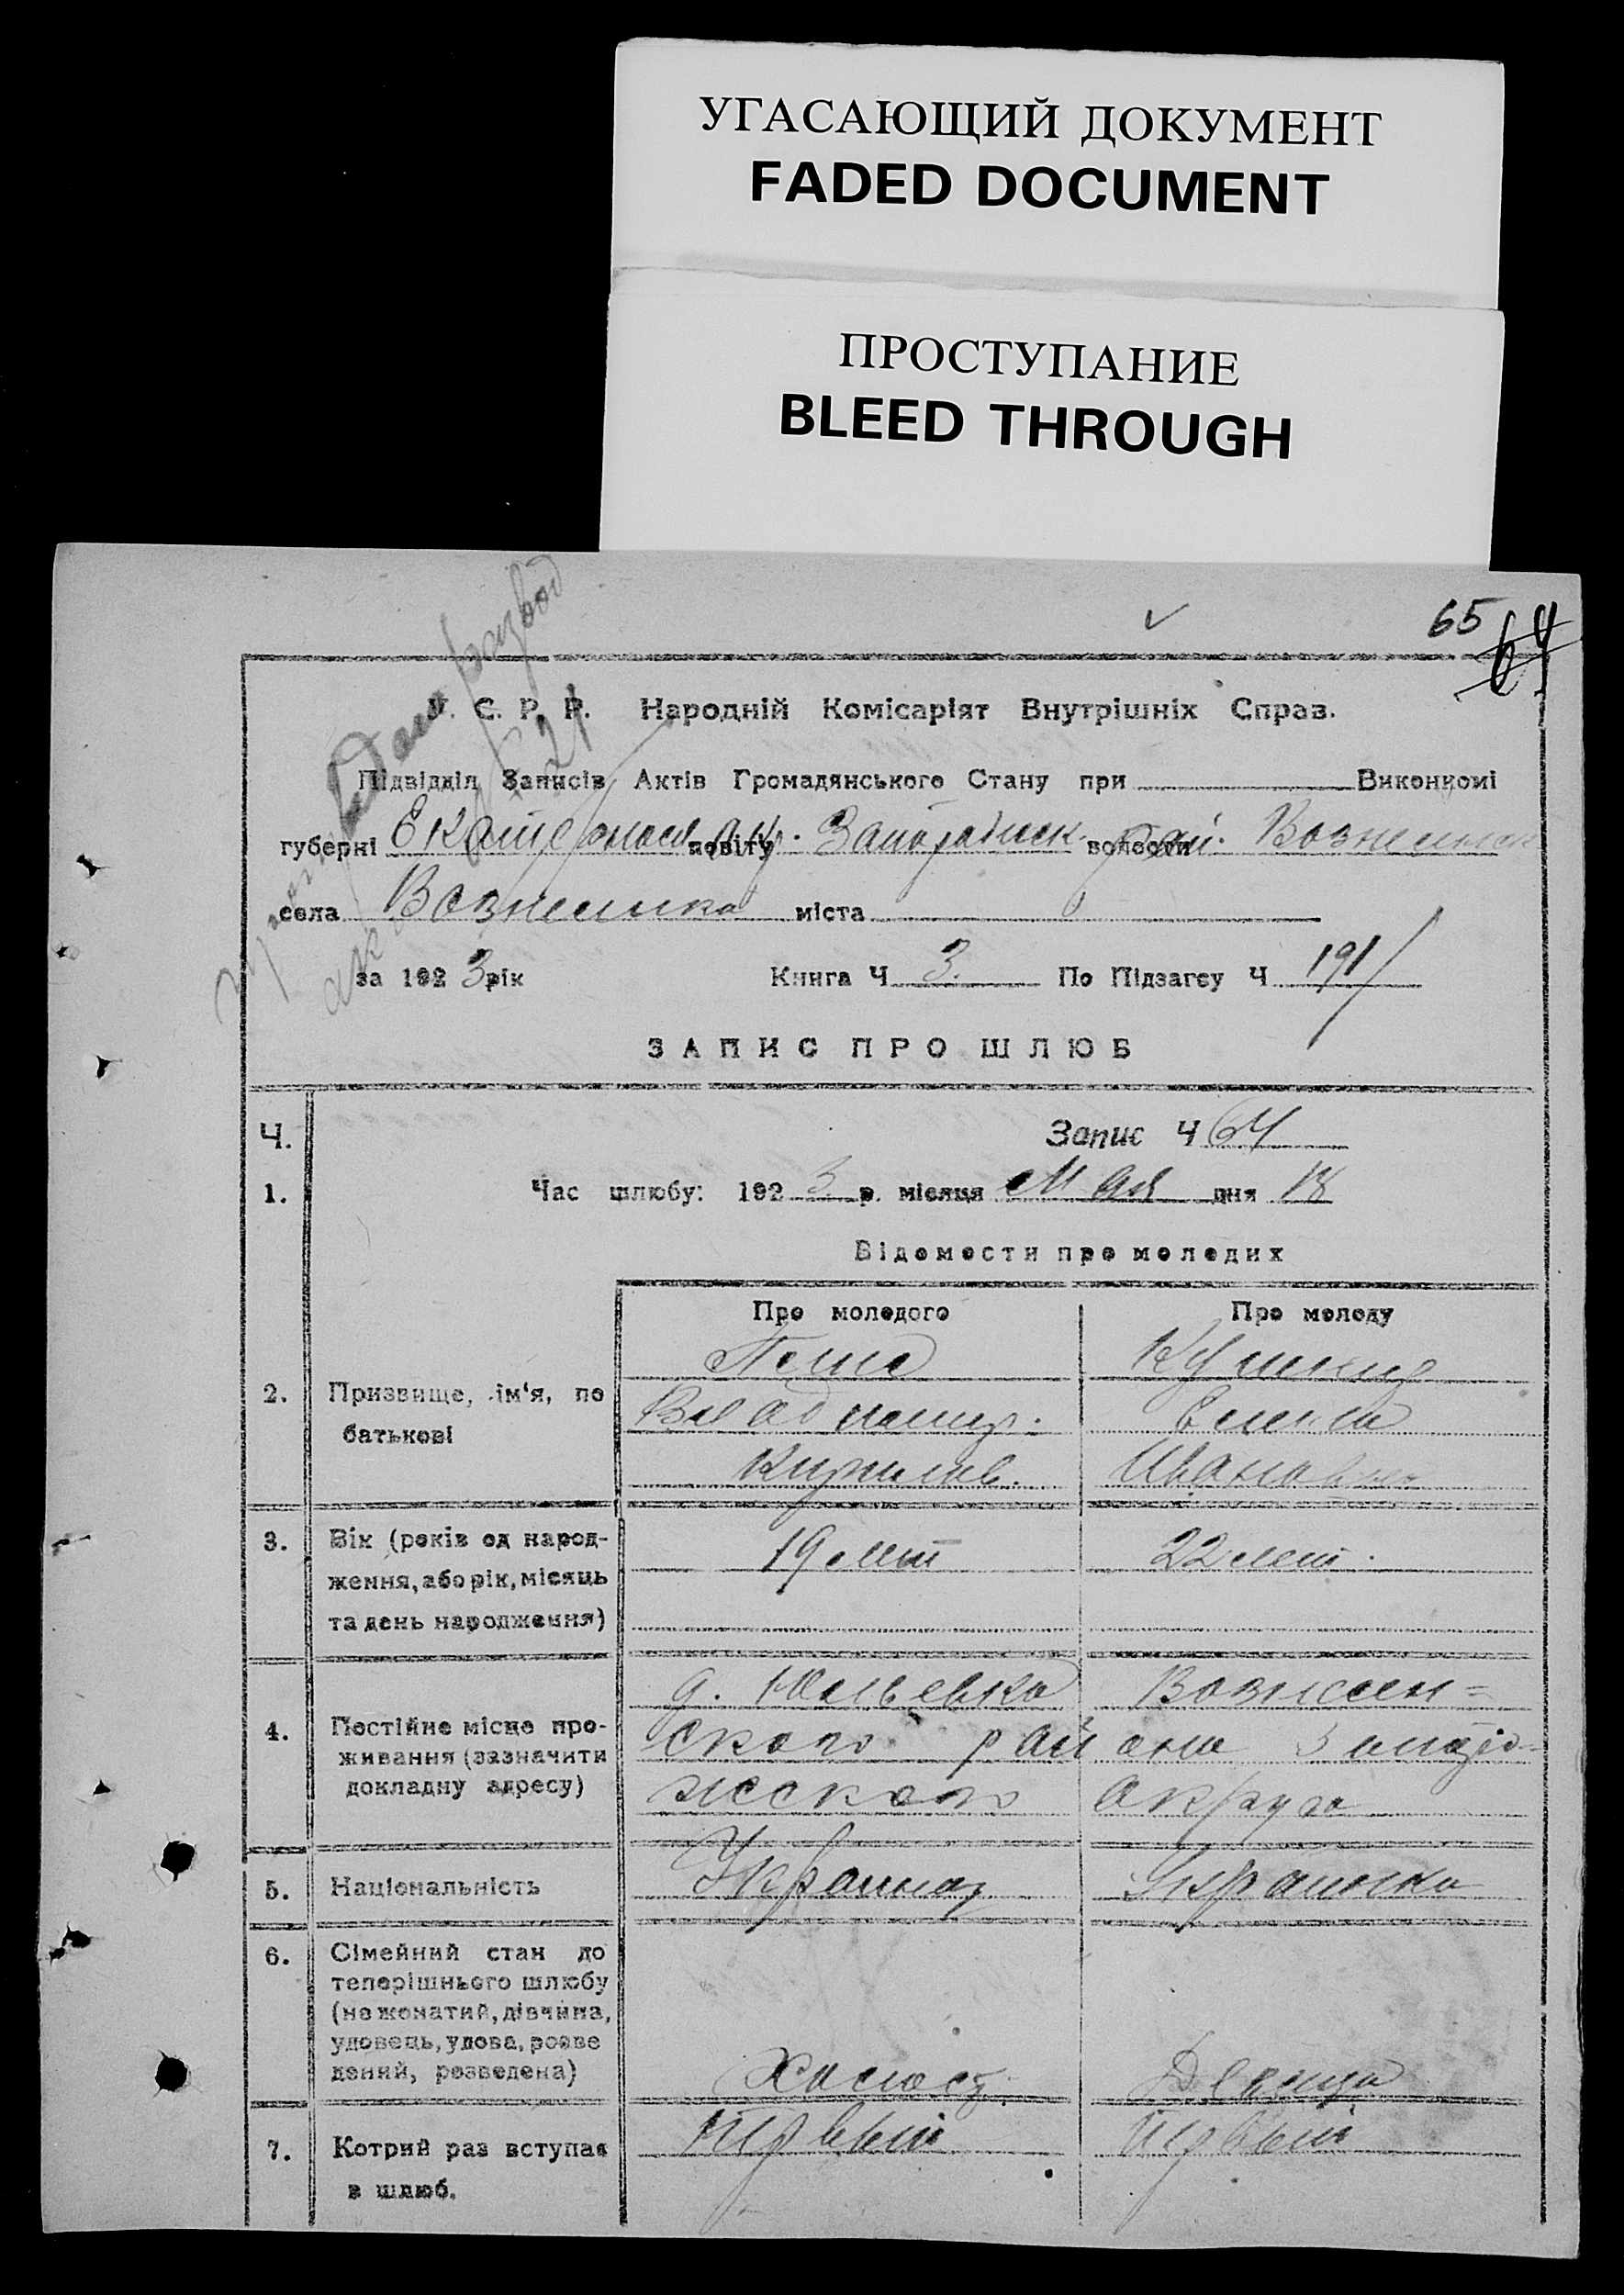 УГАСАЮЩИЙ ДОКУМЕНТ
FADED DOCUMENT
ПРОСТУПАНИЕ
BLEED THROUGH
65 64
развод
У. С. Р. Р. Народній Комісаріят Внутрішніх Справ.
№ 21
Підвідділ Записів Актів Громадянського Стану при Виконкомі
губерні Екатеринослав повіту окр. Запорожск. волости рай. Вознесенск
села Вознесенка міста
за 1923 рік Книга Ч 3. По Підзагсу Ч 191
ЗАПИС ПРО ШЛЮБ
Ч. Запис Ч 64
1. Час шлюбу: 1923 р. місяця Мая дня 18
Відомости про молодих
Про молодого Про молоду
2. Призвище, ім'я, по батькові
Владимир. Елена
Кирилов. Ивановна
3. Вік (років од народ- 19 лет 22 лет.
ження, або рік, місяць
та день народження)
д. Юльевка Вознесен=
4. Постійне місце про- ского района Запоро-
живання (зазначити
докладну адресу) жского округа
5. Національність Украинец Украинка
6. Сімейний стан до
теперішнього шлюбу
(не жонатий, дівчина,
удовець, удова, розве
дений, розведена) Холост. Девица
7. Котрий раз вступає Первый Первый
в шлюб.